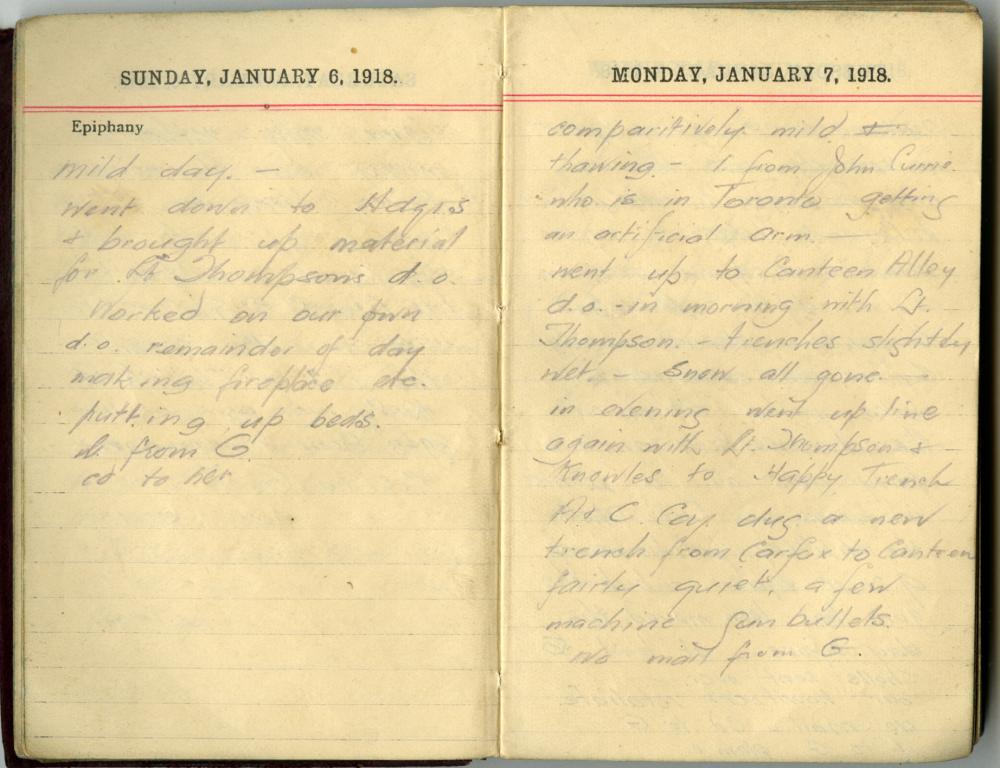 SUNDAY, JANUARY 6, 1918.
Epiphany
mild day. —
went down to Hdqrs
& brought up material
for Lt Thompson's d.o.
Worked on our own
d.o. remainder of day
making fireplace etc.
putting up beds.
L from G.
to her
MONDAY, JANUARY 7, 1918.
comparitively mild &
thawing - L from John Currie
who is in Toronto getting
an artificial arm. —
went up to Canteen Alley
d.o. - in morning with Lt.
Thompson. - trenches slightly
wet. - Snow all gone.
in evening went up line
again with Lt. Thompson &
Knowles to Happy Trench
A & C Coy. dug a new
trench from Carfax to Canteen
fairly quiet. a few
machine gun bullets.
No mail from G.